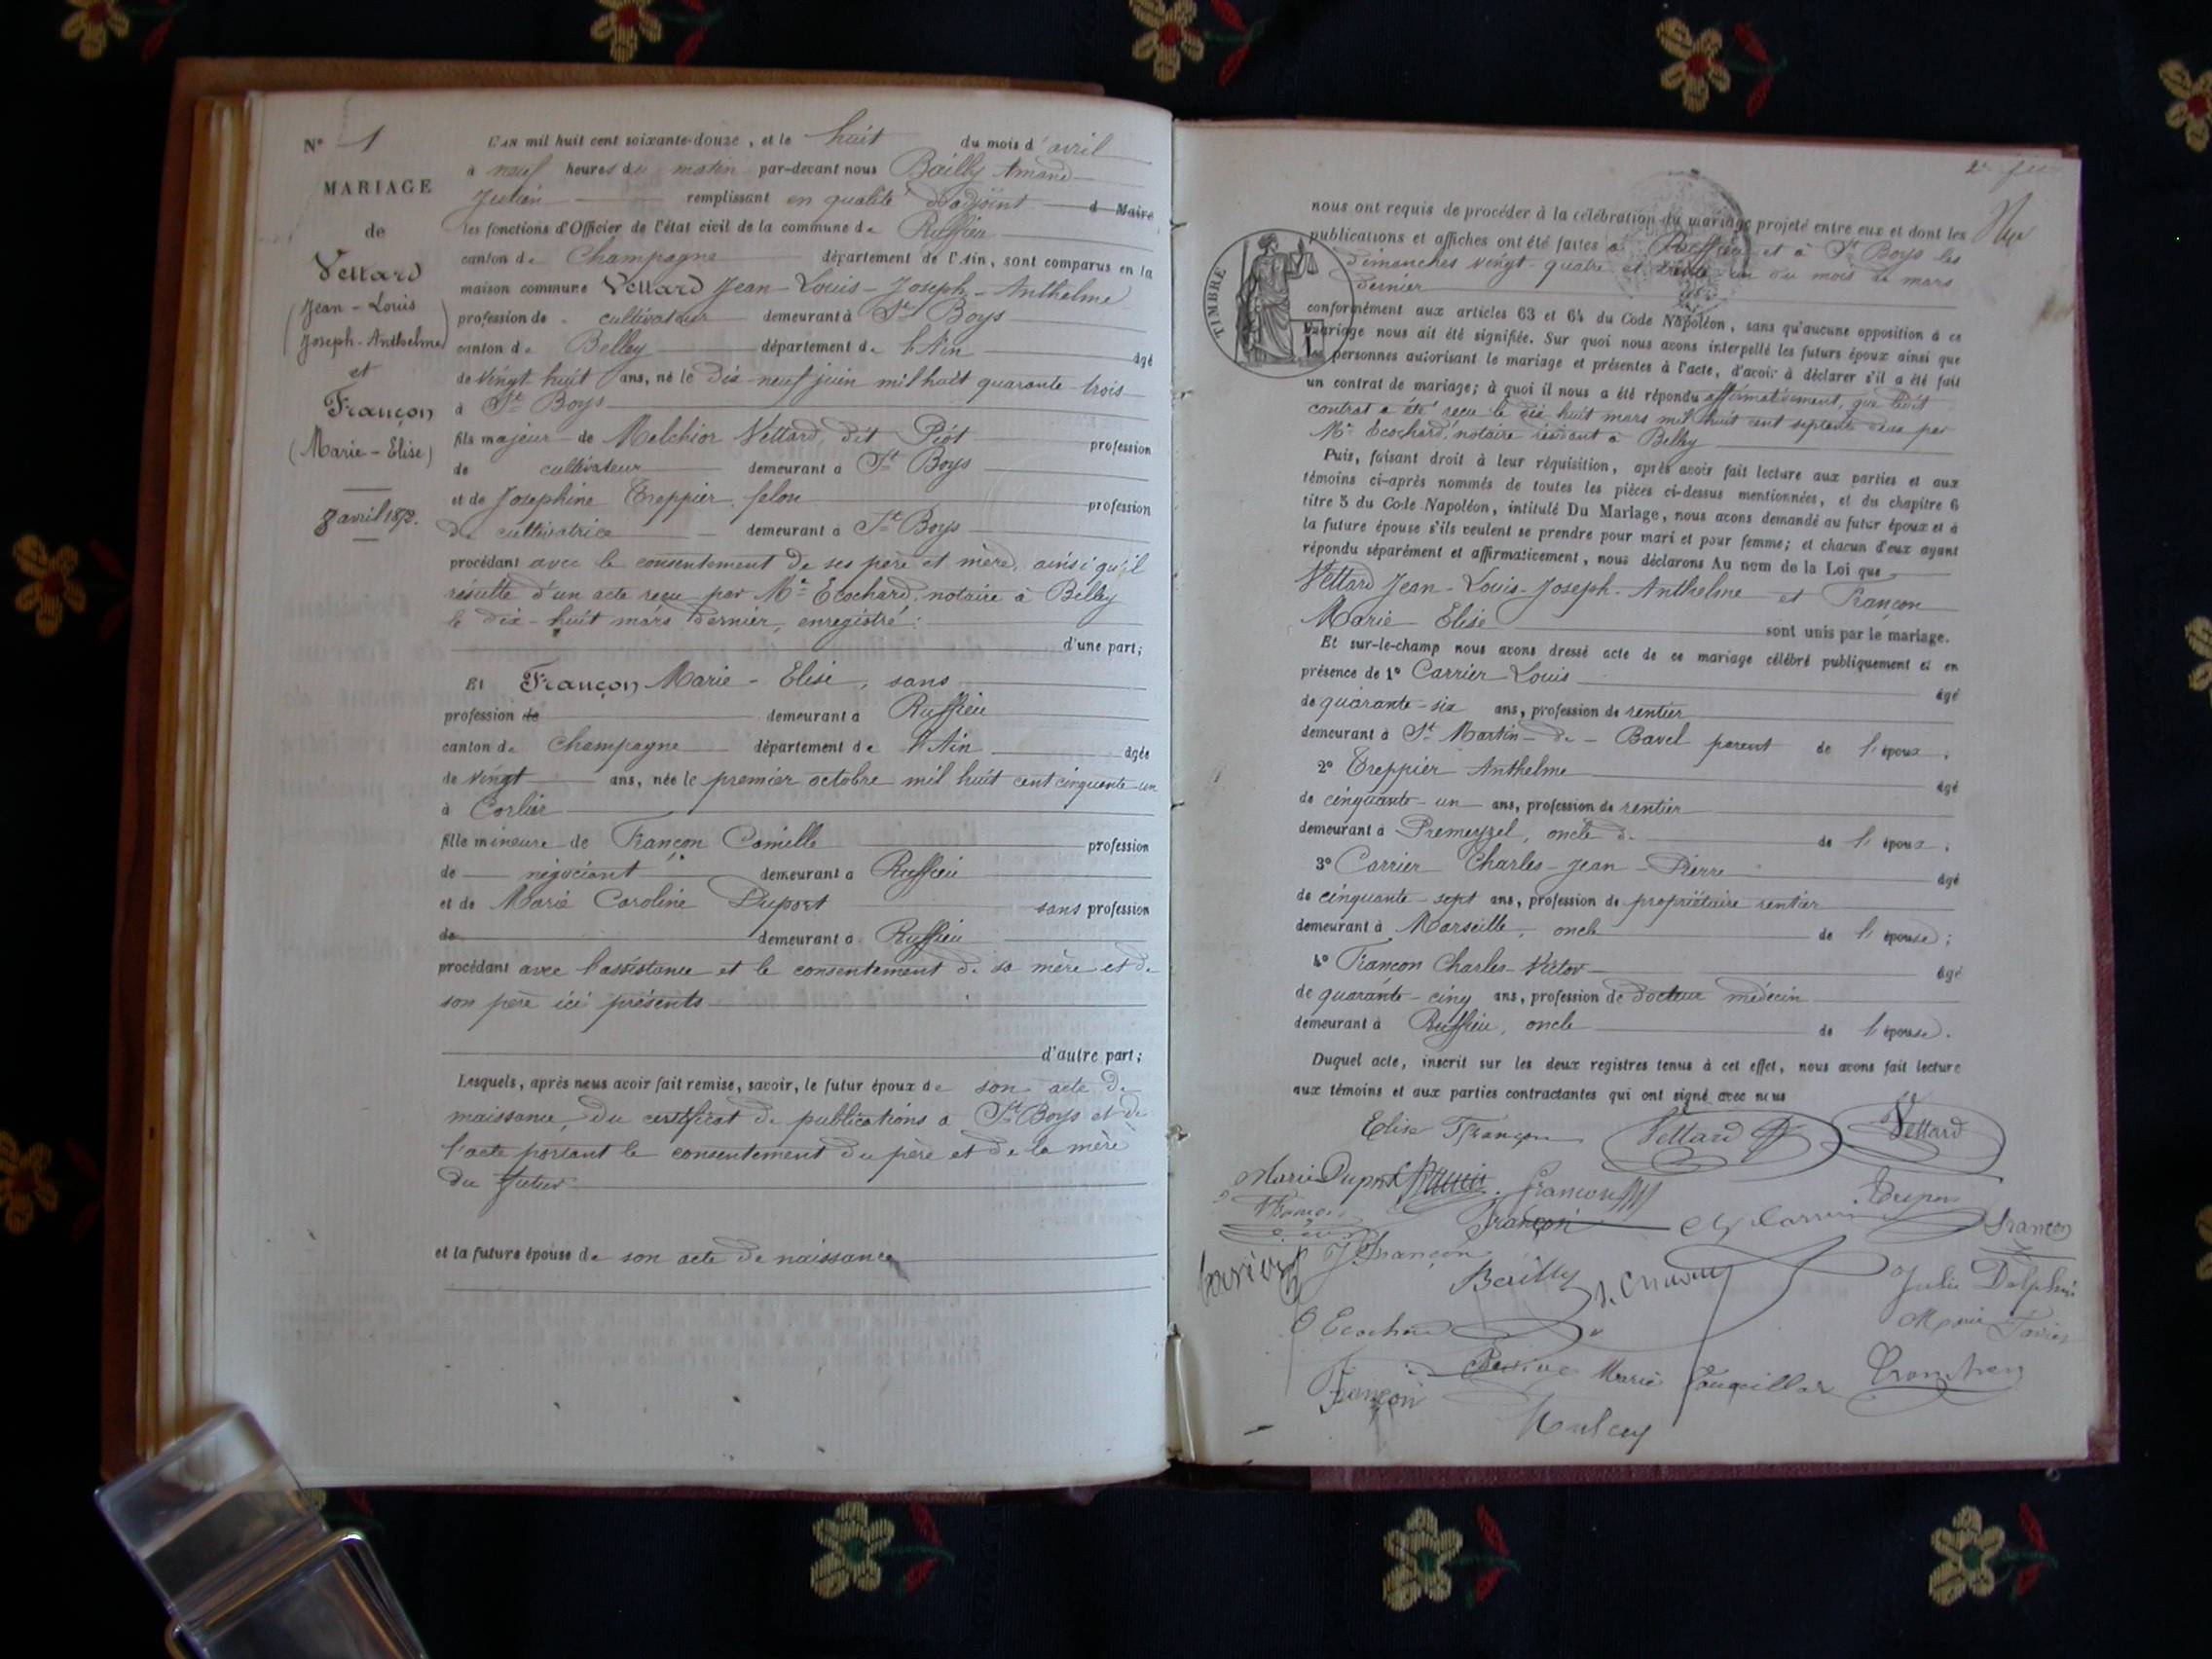 N° 1
MARIAGE
de
Vettard
(Jean-Louis
Joseph-Anthelme)
et
Françon
(Marie-Elise)
8 avril 1872.
L'AN mil huit cent soixante-douze, et le huit du mois d'avril
à neuf heures du matin par-devant nous Bailly Amand
Julien remplissant en qualité d'adjoint d Maire
les fonctions d'Officier de l'état civil de la commune de Ruffieu
canton de Champagne département de l'Ain, sont comparus en la
maison commune Vettard Jean-Louis-Joseph-Anthelme
profession de cultivateur demeurant à St Boys
canton de Belley département de l'Ain âgé
de vingt huit ans, né le dix-neuf juin mil huit quarante-trois
à St Boys
fils majeur de Melchior Vettard, dit Piot profession
de cultivateur demeurant à St Boys
et de Josephine Treppier, selon profession
de cultivatrice demeurant à St Boys
procédant avec le consentement de ses père et mère, ainsi qu'il
résulte d'un acte reçu par Me Ecochard, notaire à Belley
le dix-huit mars dernier, enregistré.
d'une part;
Et Françon Marie-Elise, sans
profession de demeurant à Ruffieu
canton de Champagne département de l'Ain âgée
de vingt ans, née le premier octobre mil huit cent cinquante-un
à Corlier
fille mineure de Françon Camille profession
de négociant demeurant à Ruffieu
et de Marie Caroline Duport sans profession
de demeurant à Ruffieu
procédant avec l'assistance et le consentement de sa mère et de
son père ici présents
d'autre part;
Lesquels, après nous avoir fait remise, savoir, le futur époux de son acte de
naissance, du certificat de publications à St Boys et de
l'acte portant le consentement du père et de la mère
du futur
et la future épouse de son acte de naissance
nous ont requis de procéder à la célébration du mariage projeté entre eux et dont les
publications et affiches ont été faites à Ruffieu et à St Boys les
dimanches vingt-quatre et trente un du mois de mars
dernier
TIMBRE
conformément aux articles 63 et 64 du Code Napoléon, sans qu'aucune opposition à ce
mariage nous ait été signifiée. Sur quoi nous avons interpellé les futurs époux ainsi que
les personnes autorisant le mariage et présentes à l'acte, d'avoir à déclarer s'il a été fait
un contrat de mariage; à quoi il nous a été répondu affirmativement, que ledit
contrat a été reçu le dix huit mars mil huit cent septante deux par
Me Ecochard, notaire résidant à Belley
Puis, faisant droit à leur réquisition, après avoir fait lecture aux parties et aux
témoins ci-après nommés de toutes les pièces ci-dessus mentionnées, et du chapitre 6
titre 5 du Code Napoléon, intitulé Du Mariage, nous avons demandé au futur époux et à
la future épouse s'ils veulent se prendre pour mari et pour femme; et chacun d'eux ayant
répondu séparément et affirmativement, nous déclarons Au nom de la Loi que
Vettard Jean-Louis-Joseph-Anthelme et Françon
Marie Elise sont unis par le mariage.
Et sur-le-champ nous avons dressé acte de ce mariage célébré publiquement et en
présence de 1° Carrier Louis âgé
de quarante-six ans, profession de rentier
demeurant à St Martin-de-Bavel parent de l'époux;
2° Treppier Anthelme âgé
de cinquante-un ans, profession de rentier
demeurant à Premeyzel, oncle d. de l'époux;
3° Carrier Charles-Jean-Pierre âgé
de cinquante-sept ans, profession de propriétaire rentier
demeurant à Marseille, oncle de l'épouse;
4° Françon Charles-Victor âgé
de quarante-cinq ans, profession de docteur médecin
demeurant à Ruffieu, oncle de l'épouse.
Duquel acte, inscrit sur les deux registres tenus à cet effet, nous avons fait lecture
aux témoins et aux parties contractantes qui ont signé avec nous
Elise Françon Vettard Vettard
Marie Duport Françon
Françon Françon
J. Françon
Bailly Julie Delphine
Marie
Françon Marie